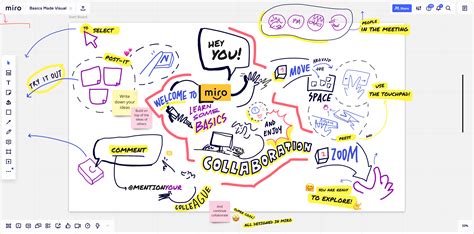 miro
Basics Made Visual
Share
Start Board
SELECT
PEOPLE
IN THE MEETING
POST-IT
HEY
YOU!
TRY IT OUT
MOVE
AROUND THE
SPACE
USE
THE TOUCHPAD!
Write down
your ideas
WELCOME TO
miro
LEARN
SOME
BASICS
AND
ENJOY
COLLABORATION
COMMENT
ZOOM
@MENTION YOUR
COLLEAGUE
YOU ARE READY
TO EXPLORE!
And
continue
ALL DESIGNED IN MIRO